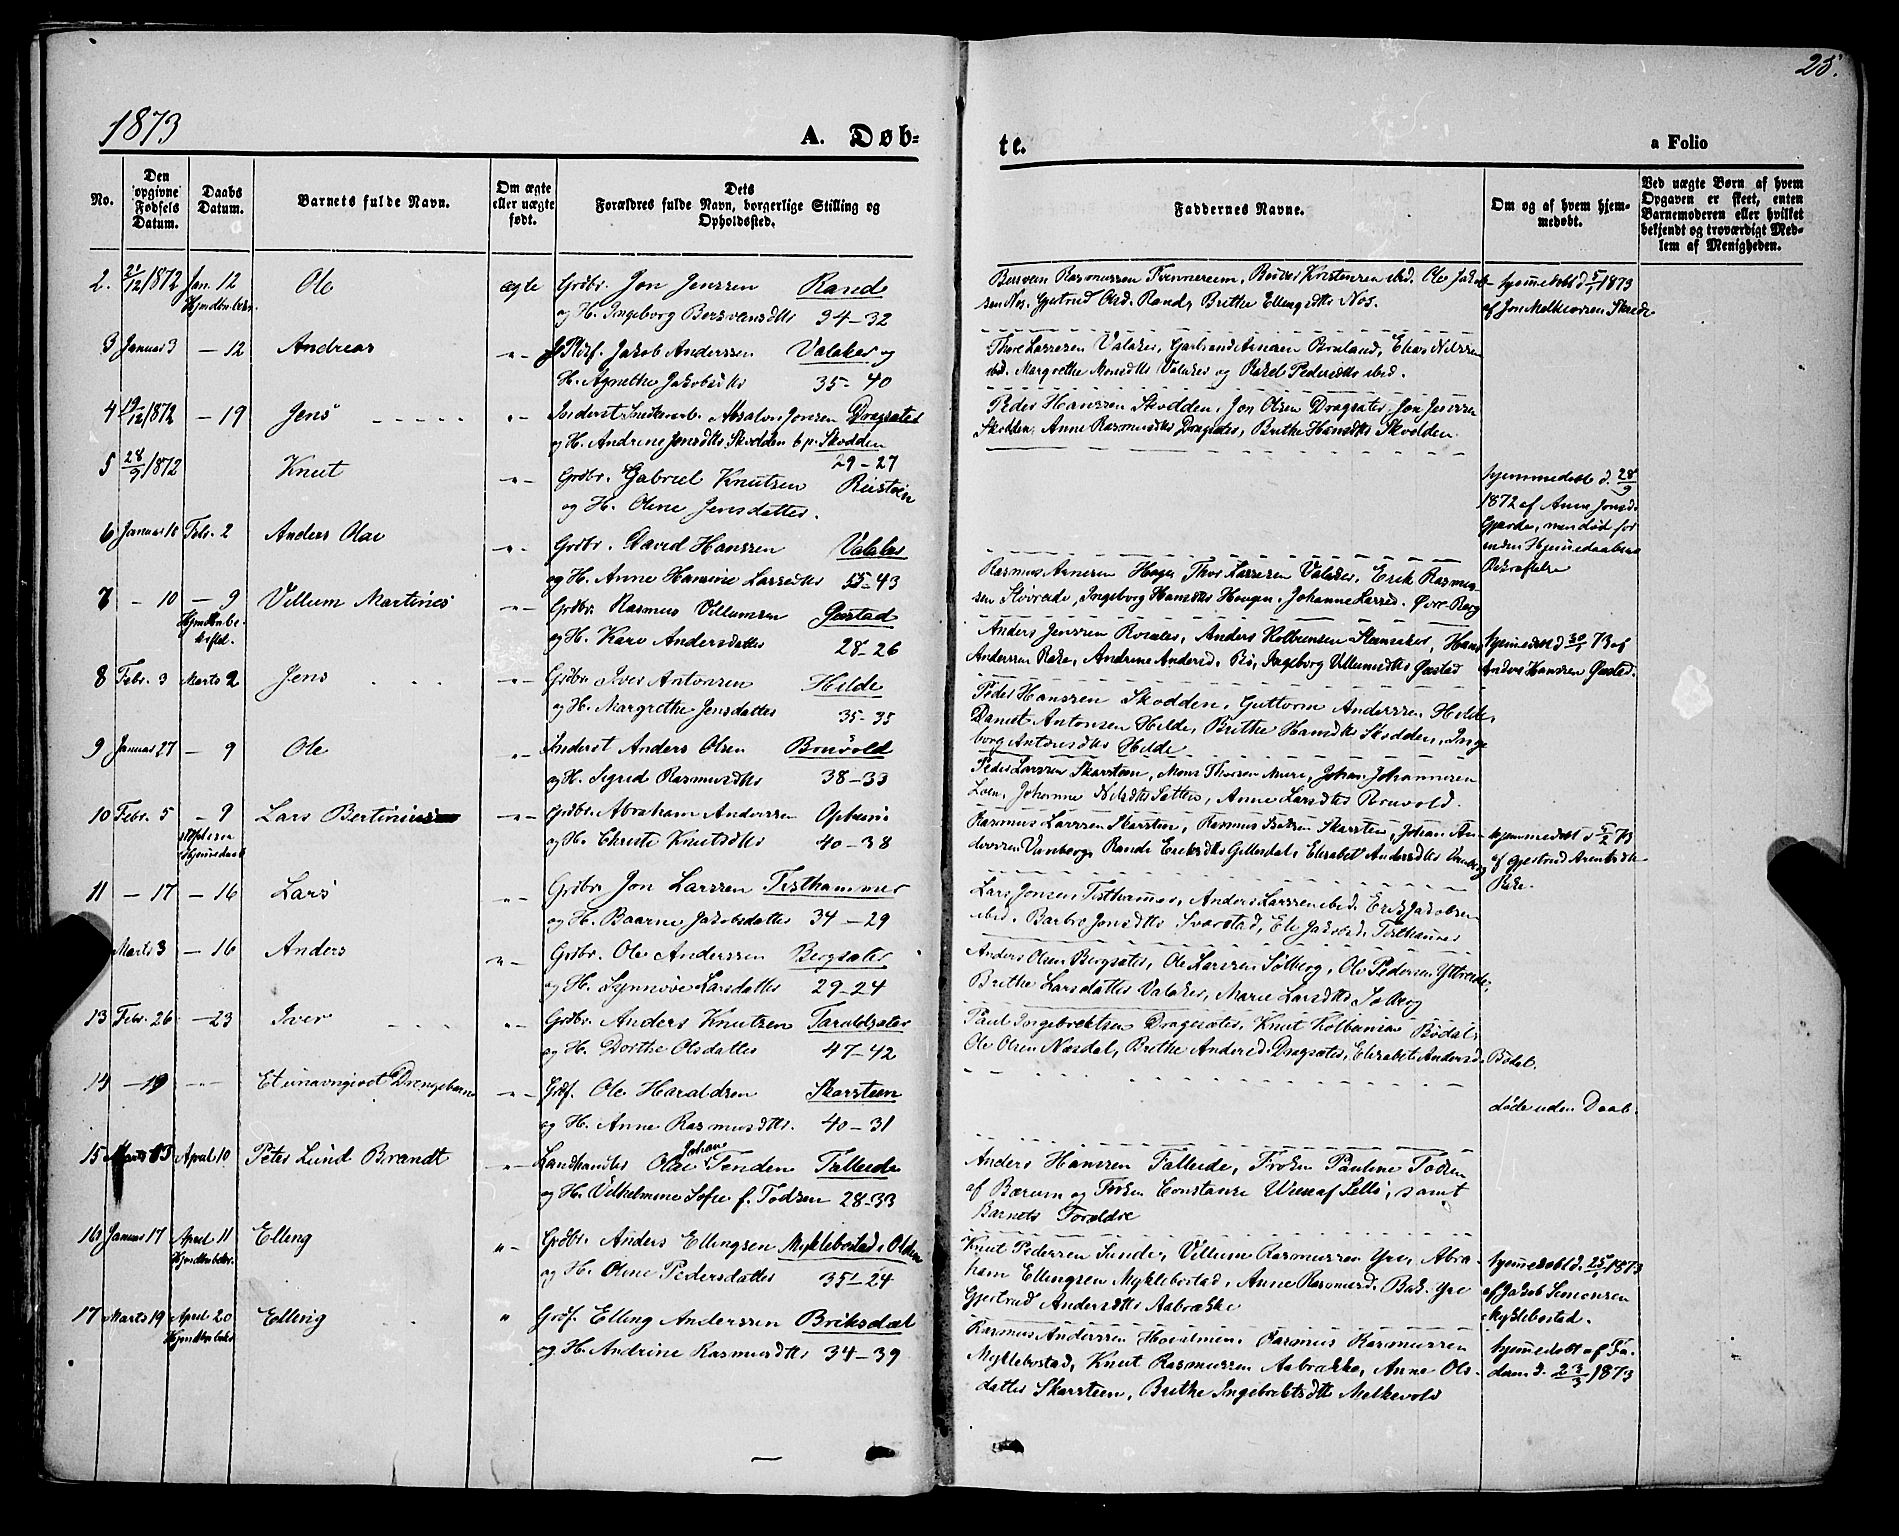 25.
1873
A. Døb-
te.
a Folio
No.
Den opgivne Fødsels Datum.
Daabs Datum.
Barnets fulde Navn.
Om ægte eller uægte født.
Dets Forældres fulde Navn, borgerlige Stilling og Opholdssted.
Faddernes Navne.
Om og af hvem hjem-medøbt.
Ved uægte Børn af hvem Opgaven er skeet, enten Barnemoderen eller hvilket bekjendt og troværdigt Med-lem af Menigheden.
2. 21/12 1872 Jan. 12 Ole ægte Grdbr. Jon Jenssen Rand
og H. Ingeborg Bersvensdtr 34-32
Rasmussen Ole
Nos, Gjertrud Olsd. Rand, Brithe Ellingsdtr Nos.
hjemmedøbt d. 5/1 1873
af Jon Melkiorsen
3 Januar 3 - 12 Andreas -"- Jakob Anderssen Valaker og
H. Agnethe Jakobsdtr 35-40
Thore Larssen Valaker, Elias Nilssen
ibd. Margrethe Monsdtr Valaker og Rakel Pedersdtr ibid.
4 19/12 1872 - 19 Jens -"- Inderst Absalon Jonsen Dragsæter
og H. Andrine Jensdtr Skodden b.p. Skodden
29-27
Peder Hanssen Skodden, Jon Olsen Dragsæter, Jon Jenssen
Skodden, Anne Rasmusdtr Dragsæter, Brithe Hansdtr Skodden.
5 28/9 1872 Knut -"- Grdbr. Gabriel Knutsen
og H. Oline Jensdatter.
hjemmedøbt d. 28/9
1872 af Anne Jonsd.
Gjerde, men død for
inden Hjemmedaabens
Bekræftelse
6 Januar 16 Febr. 2 Anders Olai -"- Grdbr. David Hanssen Valaker
og H. Anne Hansine Larsdtr 55-43
Rasmus Arnesen Thor Larssen Valaker, Erik Rasmus-
sen Ingeborg Hansdtr Haugen, Johanne Larsd. Øvre-Berg
7 - 10 - 9 Villum Martines -"- Grdbr. Rasmus Villumsen Gæstad
og H. Kari Andersdatter 28-26
Anders Jenssen Anders Kolbeinsen Hans
Anderssen Rake, Andrine Andersd. Bø, Ingeborg Villumsdtr Gæstad
hjemmedøbt d 30/1 73 af
Anders Hanssen Gæstad.
8 Febr. 3 Marts 2 Jens -"- Grdbr. Iver Antonsen Hilde
og H. Margrethe Jensdatter 35-35
Peder Hanssen Skodden, Guttorm Anderssen Hilde,
Daniel Antonsen Hilde, Brithe Hansdtr Skodden, Inge
borg Antonsdtr Hilde
9 Januar 27 - 9 Ole -"- Inderst Anders Olsen Bruvold
og H. Sigrid Rasmusdtr 38-33
Peder Larssen Skarsteen, Mons Thorsen Muri, Johan Johannesen
Loen, Johanne Nilsdtr Sætter, Anne Larsdtr Bruvold.
10 Febr. 5 - 9 Lars Bertinius -"- Grdbr. Abraham Anderssen Opheim
og H. Christi Knutsdtr 40-38
Rasmus Larssen Skarsten, Rasmus Skarsten, Johan An-
derssen Vanberg, Rande Eriksdtr Gillesdal, Elisabet Andersdtr Vanberg
hjemmedøbt d 5/2 73
af Gjertrud Arentsdtr
Rake.
11 - 17 - 16 Lars -"- Grdbr Jon Larssen Tisthammer
og H. Baarni Jakobsdatter 34-29
Lars Jonsen Tisthammer, Anders Larssen ibid. Erik Jakobsen
ibid. Barbro Jonsdtr Svarstad, Eli Jakobsd. Tisthammer
Marts 3 - 16 Anders -"- Grdbr. Ole Anderssen Bergsæter
og H. Synnøve Larsdatter 29-24
Anders Olsen Bergsæter, Ole Larssen Solberg, Ole Pedersen Yttreide,
Brithe Larsdatter Valaker, Marie Larsdtr Solberg
13 Febr. 26 - 23 Iver -"- Grdbr. Anders Knutsen Taraldsæter
og H. Dorthe Olsdatter 47-42
Paul Ingebrektsen Dragesæter, Knut Kolbeinsen Bødal,
Ole Olsen Næsdal, Brithe Andersd. Dragsæter, Elisabet Andersd. Bødal.
14 - 19 Et unavngivet Drengebarn -"- Grdf. Ole Haraldsen Skarsteen
og H. Anne Rasmusdtr. 40-31
døde uden Daab.
15 Marts April 10 Peter Lund Brandt -"- Landhandler Olai Johan Tenden Falleide
og H. Vilhelmine Sofie f. Todsen 28-33
Anders Hanssen Falleide, Frøken Pauline Todsen
af Bærum og Frøken Constanse Wiese af Selle, samt
Barnets Forældre
16 Januar 17 April 11 Elling -"- Grdbr. Anders Ellingsen Myklebostad i Olden
og H. Oline Pedersdatter 35-24
Knut Pederssen Sunde, Villum Rasmussen Yri, Abra-
ham Ellingsen Myklebostad, Anne Rasmusd. Bak. Yri
Gjertrud Andersdtr Aabrække
hjemmedøbt d. 25/1 1873
af Jakob Simonsen
Myklebostad.
17 Marts 19 April 20 Elling " Grdf. Elling Anderssen Briksdal
og H. Andrine Rasmusdtr 34-39
Rasmus Anderssen Rasmus Rasmussen
Myklebostad, Knut Rasmussen Aabrække, Anne Ols-
datter Skarsteen, Brithe Ingebrektsdtr Melkevold
hjemmedøbt af Fa-
deren d. 23/3 1873